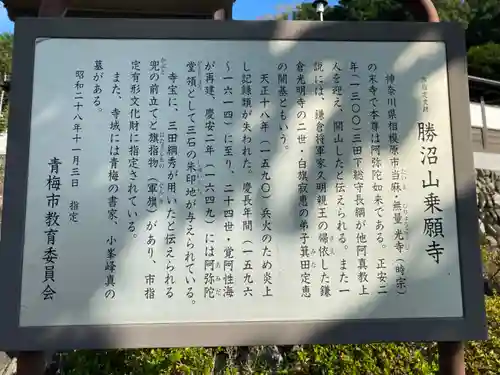 市指定史跡
勝沼山乗願寺
神奈川県相模原市当麻・無量光寺（時宗）
の末寺で本尊は阿弥陀如来である。正安二
年（一三〇〇）三田下総守長綱が他阿真教上
人を迎え、開山したと伝えられる。また一
説には、鎌倉将軍家久明親王の帰依した鎌
倉光明寺の二世・白旗寂恵の弟子箕田定恵
の開基ともいう。
天正十八年（一五九〇）兵火のため炎上
し記録類が失われた。慶長年間（一五九六
〜一六一四）に至り、二十四世・覚阿性海
が再建、慶安二年（一六四九）には阿弥陀
堂領として三石の朱印地が与えられている。
寺宝に、三田綱秀が用いたと伝えられる
兜の前立てと旗指物（軍旗）があり、市指
定有形文化財に指定されている。
また、寺域には青梅の書家、小峰峰真の
墓がある。
昭和二十八年十一月三日　指定
青梅市教育委員会